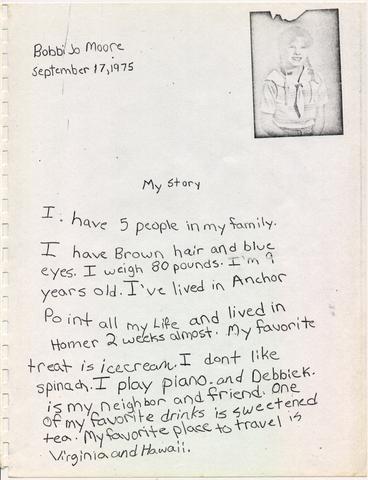 Bobbi Jo Moore
September 17, 1975
My Story
I. have 5 people in my family.
I have Brown hair and blue
eyes. I weigh 80 pounds. I'm 9
years old. I've lived in Anchor
Point all my Life and lived in
Homer 2 weeks almost. My favorite
treat is icecream. I dont like
spinach. I play piano. and Debbie K.
is my neighbor and friend. One
of my favorite drinks is sweetened
tea. My favorite place to travel is
Virginia and Hawaii.